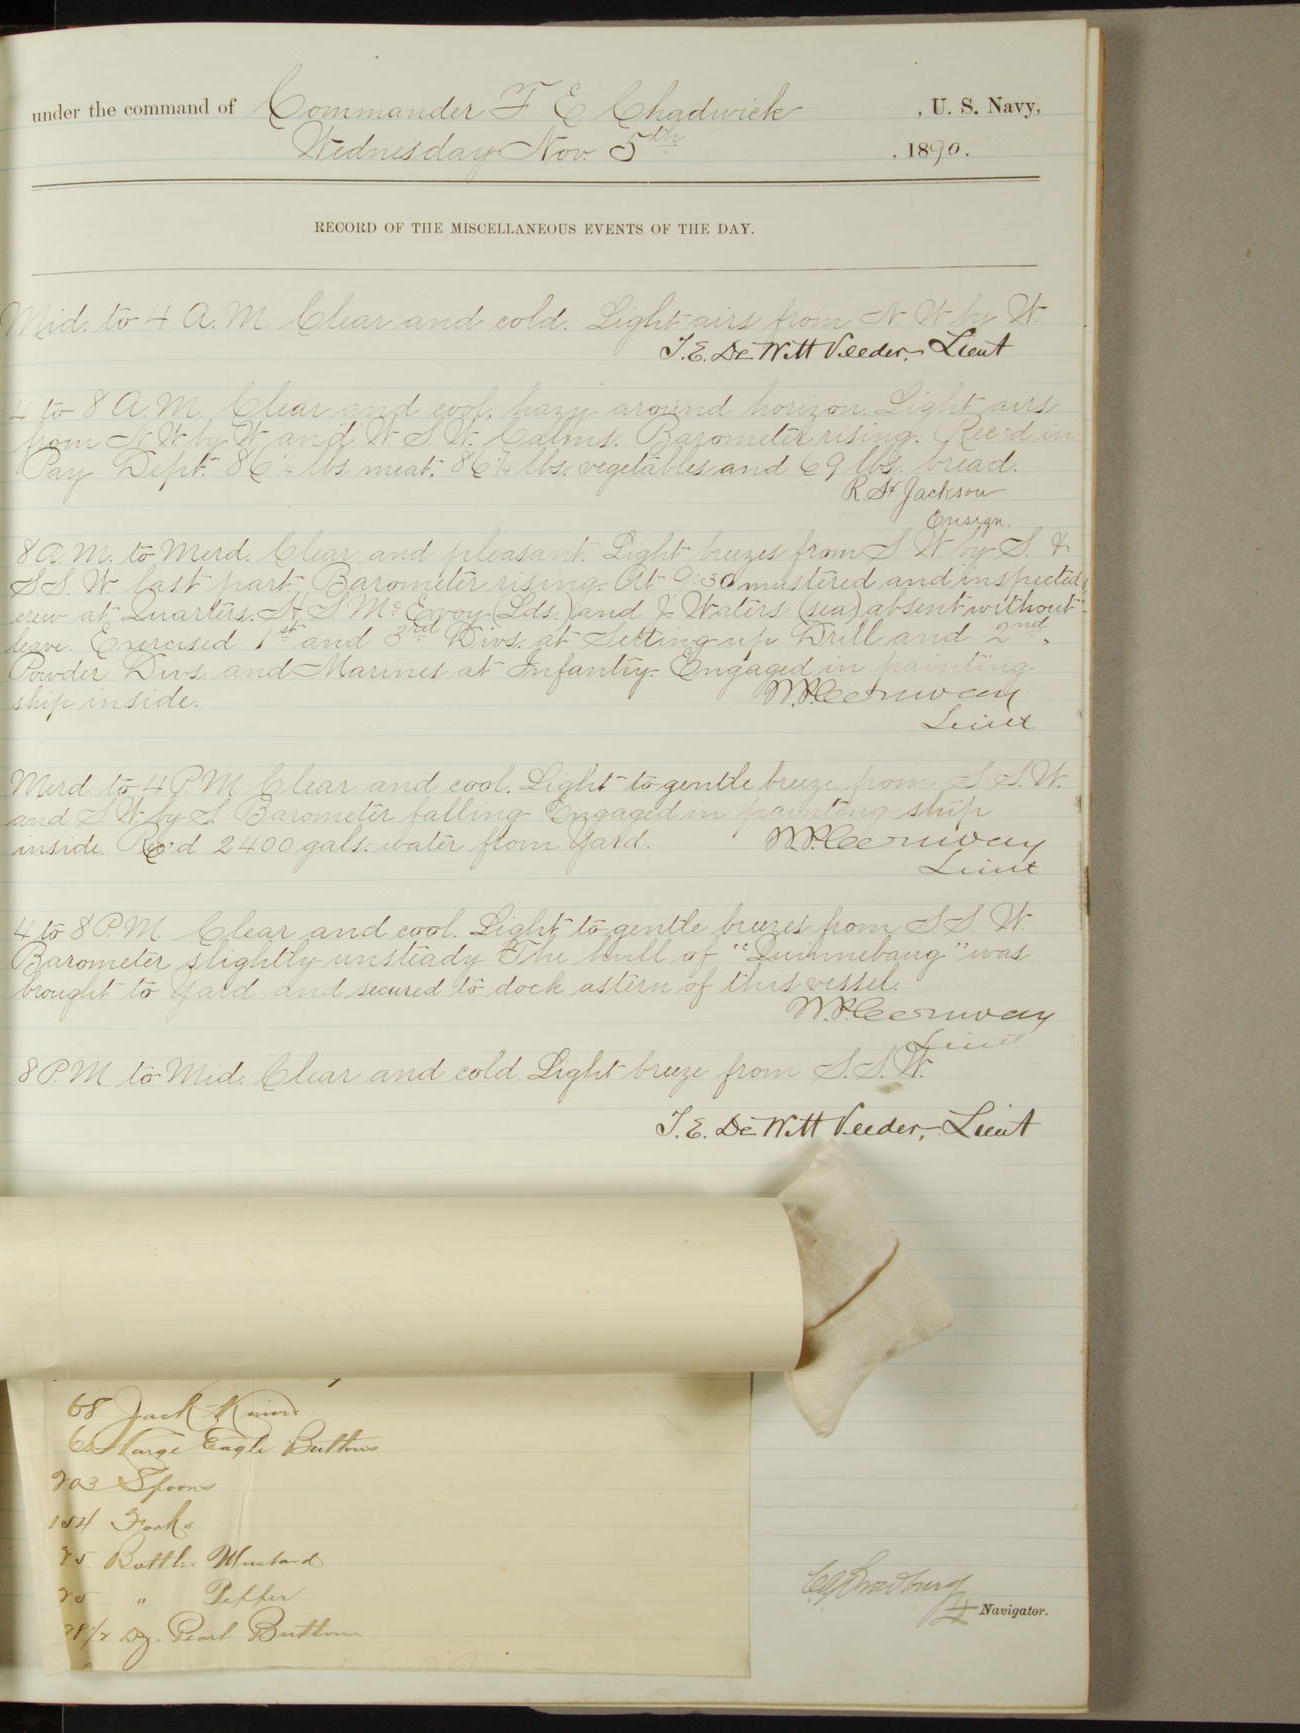 under the command of Commander F. E. Chadwick , U. S. Navy,
Wednesday Nov. 5th , 1890.
RECORD OF THE MISCELLANEOUS EVENTS OF THE DAY.
Mid. to 4 A.M. Clear and cold. Light airs from N. W. by W.
T. E. De Witt Veeder, Lieut
4 to 8 A.M. Clear and cool, hazy around horizon. Light airs
from N W. by W. and W. S. W. Calms. Barometer rising. Rec'd in
Pay Dept. 86 1/4 lbs. meat. 86 1/4 lbs. vegetables and 69 lbs. bread.
R. H. Jackson
Ensign.
8 A.M. to Merd. Clear and pleasant. Light breezes from S W. by S. &
S.S. W. last part. Barometer rising. At 9:30 mustered and inspected
crew at Quarters. H. S. McEvoy (Lds.) and J. Waters (sea) absent without
leave. Exercised 1st and 3rd Divs. at Setting-up Drill and 2nd,
Powder Divs. and Marines at Infantry. Engaged in painting
ship inside. W. P. Conway
Lieut
Merd. to 4 P.M. Clear and cool. Light to gentle breeze from S. S. W.
and S. W. by S. Barometer falling. Engaged in painting ship
inside. Rec'd 2400 gals. water from Yard. W. P. Conway
Lieut
4 to 8 P.M. Clear and cool. Light to gentle breezes from S. S. W.
Barometer slightly unsteady. The hull of "Quinnebaug" was
brought to Yard and secured to dock astern of this vessel.
W. P. Conway
Lieut
8 P.M. to Mid. Clear and cold. Light breeze from S. S. W.
T. E. De Witt Veeder, Lieut
68 Jack Knives
Large Eagle Buttons
203 Spoons
154 Forks
25 Bottles Mustard
25 " Pepper
1/2 Dz. Pearl Buttons
Navigator.